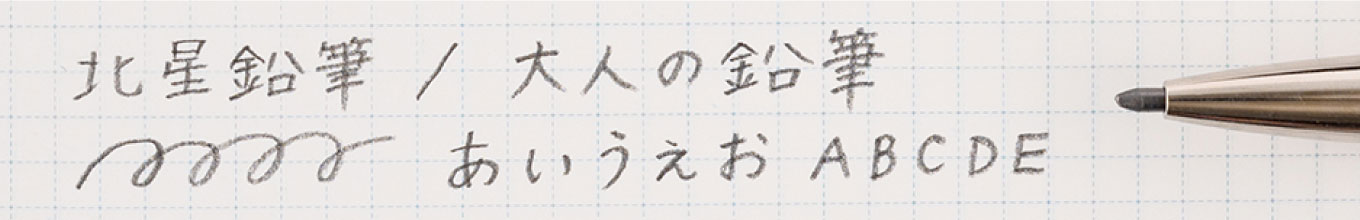 北星鉛筆 / 大人の鉛筆
あいうえお ABCDE